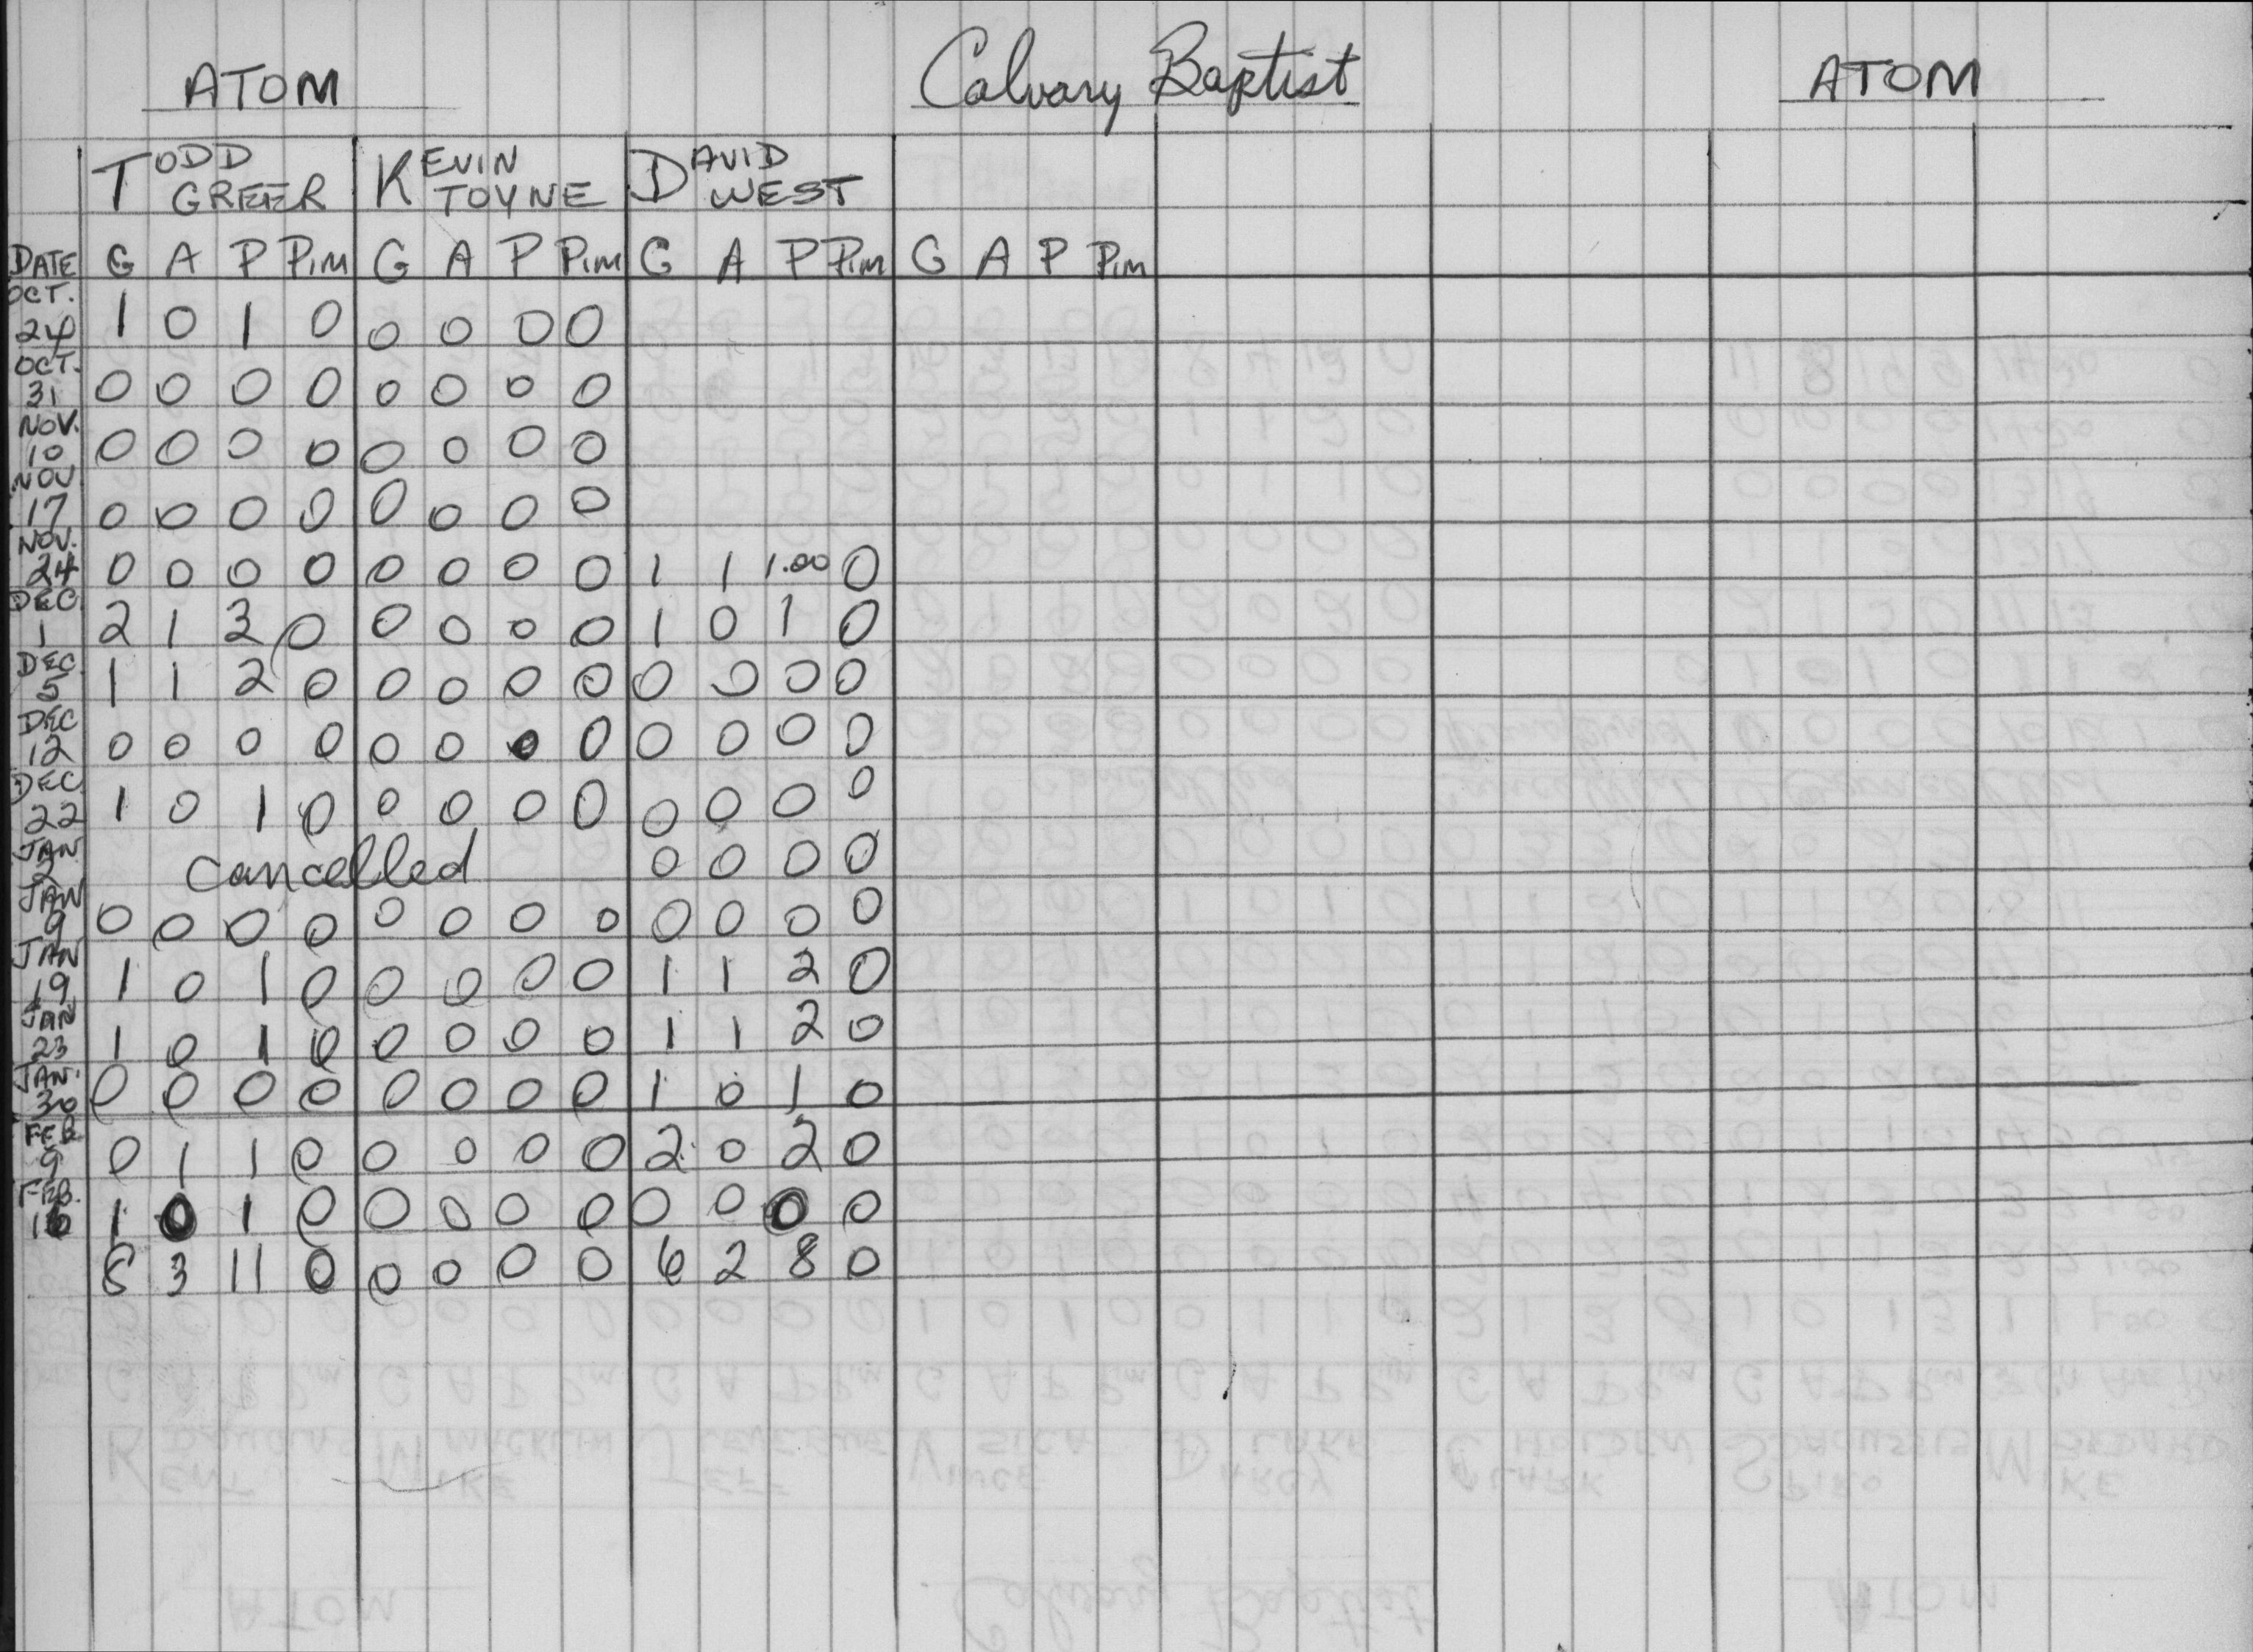 ATOM Calvary Baptist ATOM
TODD GREER KEVIN TOYNE DAVID WEST
DATE G A P PiM G A P PiM G A P PiM G A P PiM
OCT. 24 1 0 1 0 0 0 0 0
OCT. 31 0 0 0 0 0 0 0 0
NOV. 10 0 0 0 0 0 0 0 0
NOV 17 0 0 0 0 0 0 0 0
NOV. 24 0 0 0 0 0 0 0 0 1 1 1.00 0
DEC 1 2 1 3 0 0 0 0 0 1 0 1 0
DEC 5 1 1 2 0 0 0 0 0 0 0 0 0
DEC 12 0 0 0 0 0 0 0 0 0 0 0 0
DEC 22 1 0 1 0 0 0 0 0 0 0 0 0
JAN 2 cancelled 0 0 0 0
JAN 9 0 0 0 0 0 0 0 0 0 0 0 0
JAN 19 1 0 1 0 0 0 0 0 1 1 2 0
JAN 23 1 0 1 0 0 0 0 0 1 1 2 0
JAN. 30 0 0 0 0 0 0 0 0 1 0 1 0
FEB 9 0 1 1 0 0 0 0 0 2 0 2 0
FEB. 16 1 0 1 0 0 0 0 0 0 0 0 0
8 3 11 0 0 0 0 0 6 2 8 0